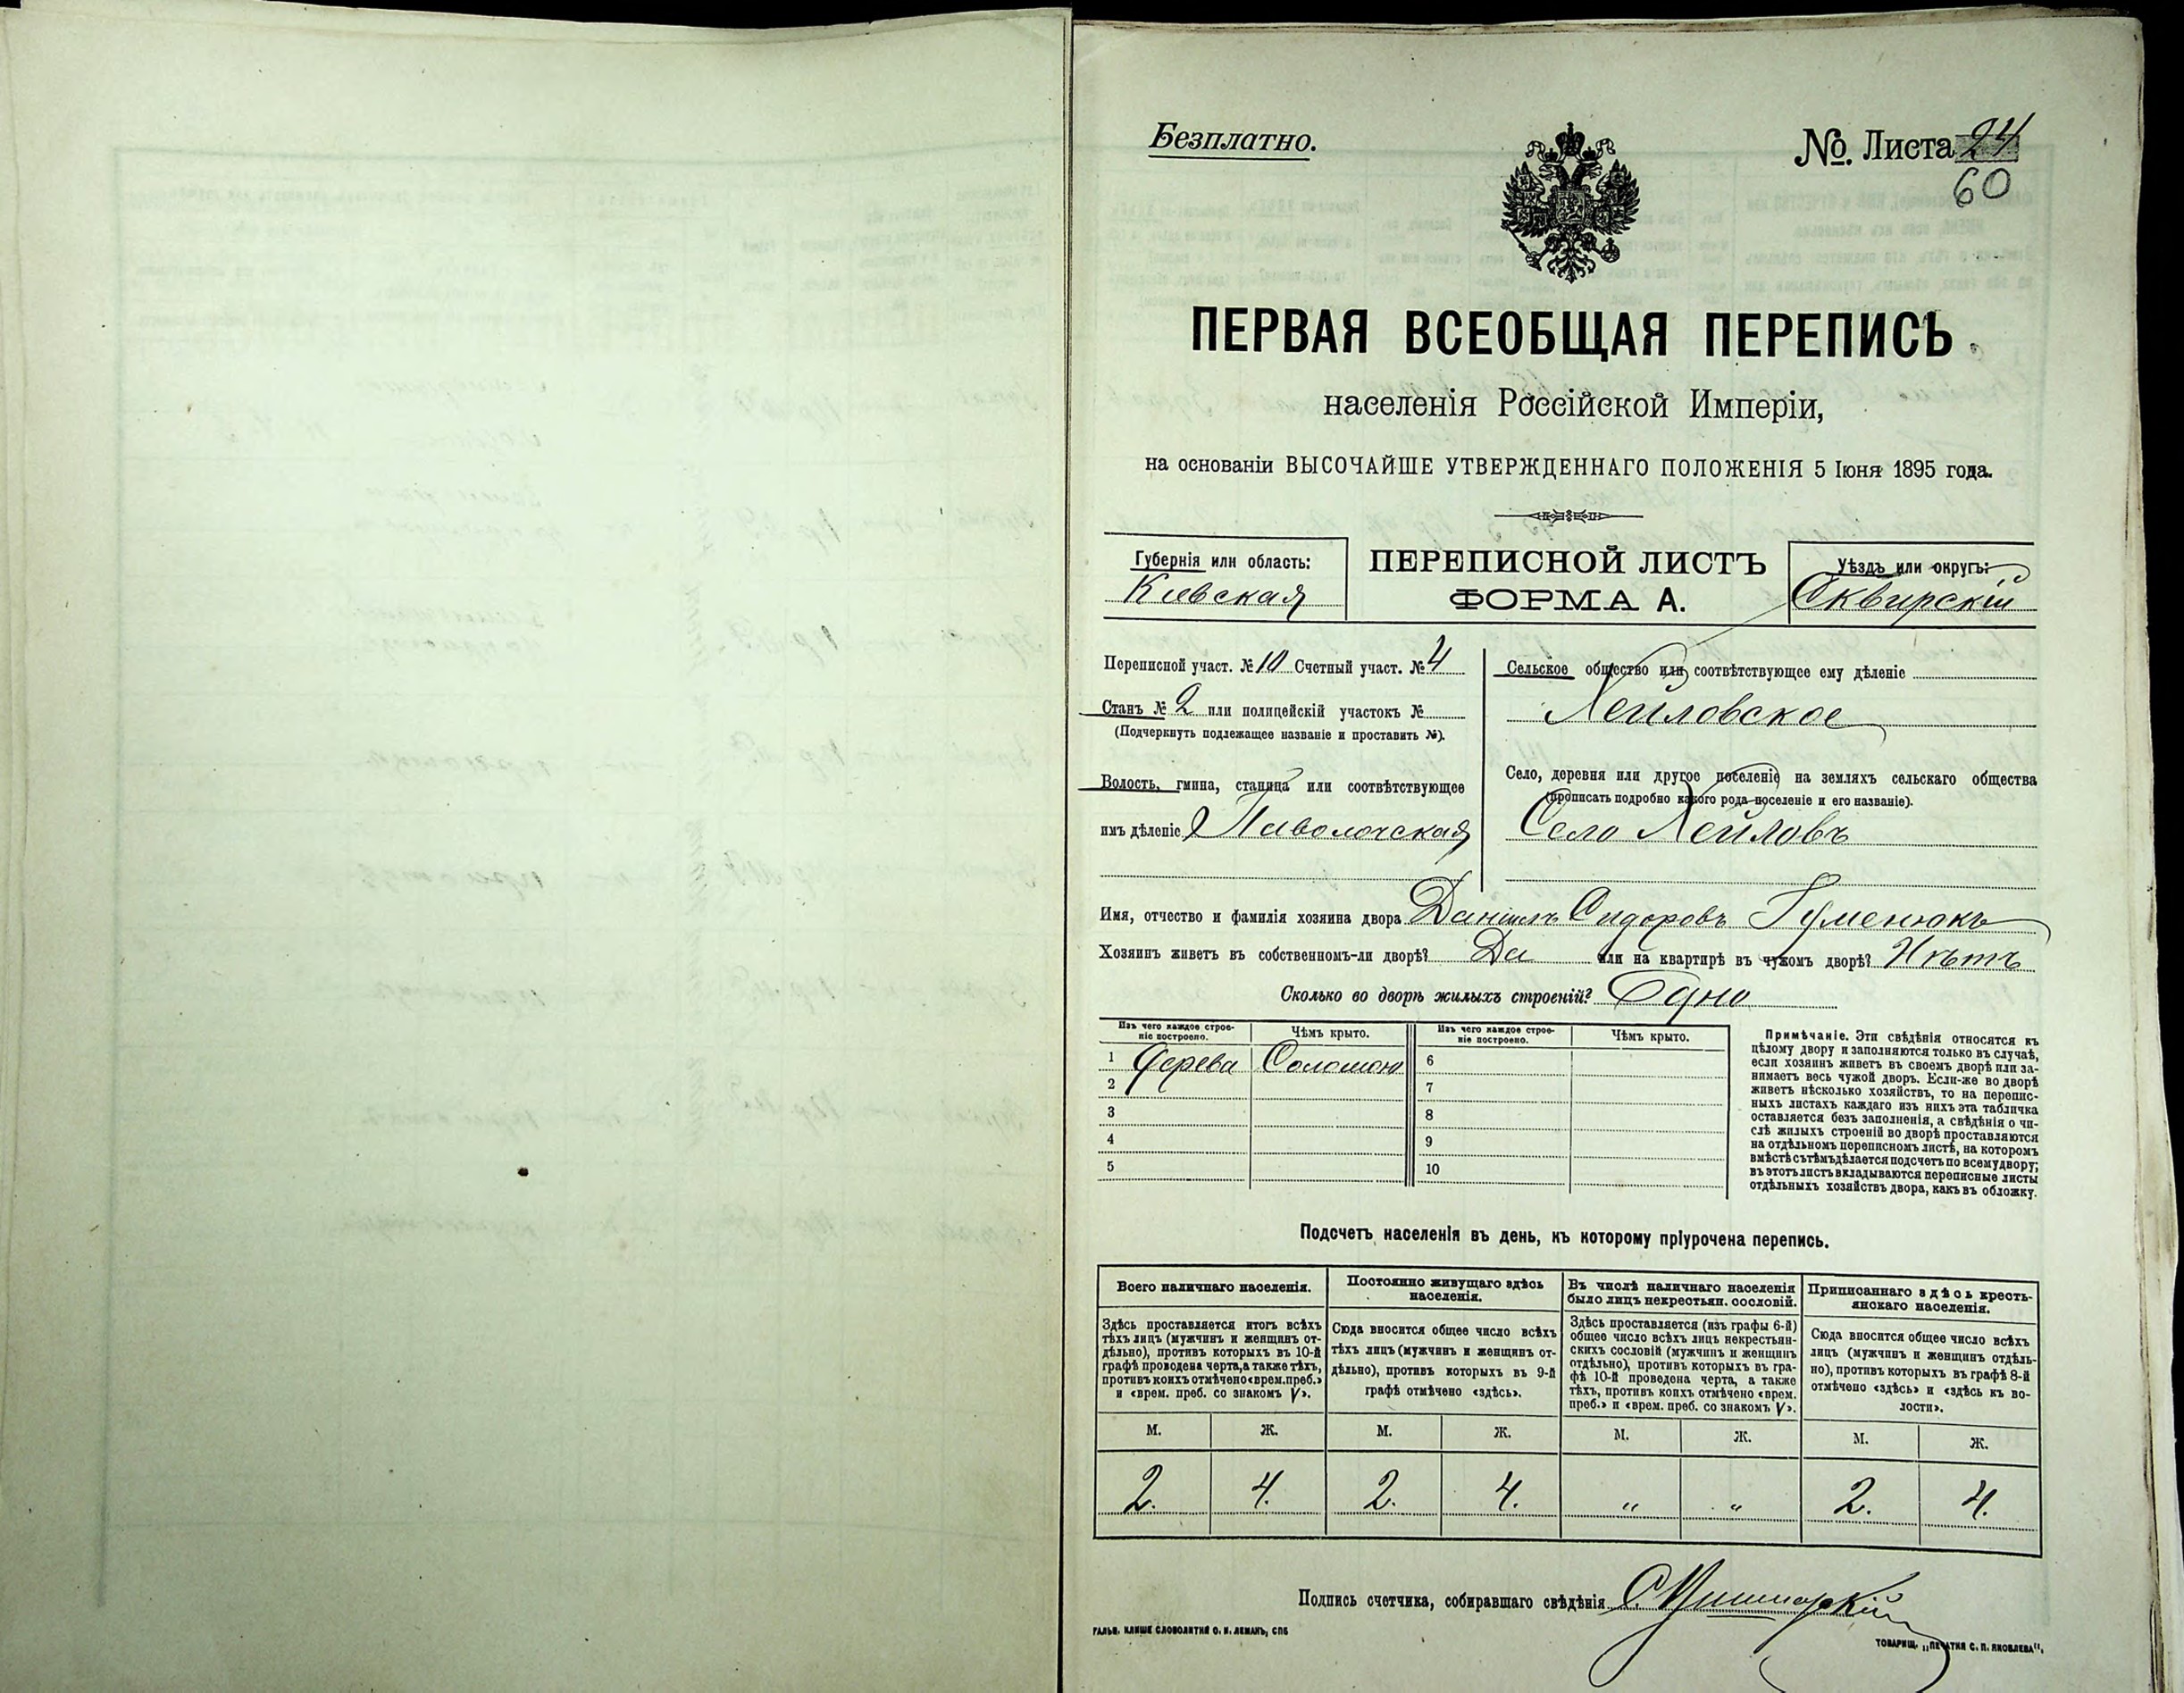 Безплатно.
№. Листа 24
60
ПЕРВАЯ ВСЕОБЩАЯ ПЕРЕПИСЬ
населенія Россійской Имперіи,
на основаніи ВЫСОЧАЙШЕ УТВЕРЖДЕННАГО ПОЛОЖЕНІЯ 5 Іюня 1895 года.
Губернія или область:
Кіевская
ПЕРЕПИСНОЙ ЛИСТЪ
ФОРМА А.
Уѣздъ или округъ:
Сквирскій
Переписной участ. № 10 Счетный участ. № 4
Станъ № 2 или полицейскій участокъ №
(Подчеркнуть подлежащее названіе и проставить №).
Волость, гмина, станица или соотвѣтствующее
имъ дѣленіе Паволочская
Сельское общество или соотвѣтствующее ему дѣленіе
Хейловское
Село, деревня или другое поселеніе на земляхъ сельскаго общества
(прописать подробно какого рода поселеніе и его названіе).
Село Хейловъ
Имя, отчество и фамилія хозяина двора Даніилъ Сидоровъ Гуменюкъ
Хозяинъ живетъ въ собственномъ-ли дворѣ? Да или на квартирѣ въ чужомъ дворѣ? Нѣтъ
Сколько во дворѣ жилыхъ строеній? Одно
Изъ чего каждое строе-
ніе построено.
Чѣмъ крыто.
1 Дерева Соломою
2
3
4
5
Изъ чего каждое строе-
ніе построено.
Чѣмъ крыто.
6
7
8
9
10
Примѣчаніе. Эти свѣдѣнія относятся къ
цѣлому двору и заполняются только въ случаѣ,
если хозяинъ живетъ въ своемъ дворѣ или за-
нимаетъ весь чужой дворъ. Если-же во дворѣ
живетъ нѣсколько хозяйствъ, то на перепис-
ныхъ листахъ каждаго изъ нихъ эта табличка
оставляется безъ заполненія, а свѣдѣнія о чи-
слѣ жилыхъ строеній во дворѣ проставляются
на отдѣльномъ переписномъ листѣ, на которомъ
вмѣстѣ съ тѣмъ дѣлается подсчетъ по всему двору;
въ этотъ листъ вкладываются переписные листы
отдѣльныхъ хозяйствъ двора, какъ въ обложку.
Подсчетъ населенія въ день, къ которому пріурочена перепись.
Всего наличнаго населенія.
Здѣсь проставляется итогъ всѣхъ
тѣхъ лицъ (мужчинъ и женщинъ от-
дѣльно), противъ которыхъ въ 10-й
графѣ проведена черта, а также тѣхъ,
противъ коихъ отмѣчено «врем. преб.»
и «врем. преб. со знакомъ V».
М. Ж.
2. 4.
Постоянно живущаго здѣсь
населенія.
Сюда вносится общее число всѣхъ
тѣхъ лицъ (мужчинъ и женщинъ от-
дѣльно), противъ которыхъ въ 9-й
графѣ отмѣчено «здѣсь».
М. Ж.
2. 4.
Въ числѣ наличнаго населенія
было лицъ некрестьян. сословій.
Здѣсь проставляется (изъ графы 6-й)
общее число всѣхъ лицъ некрестьян-
скихъ сословій (мужчинъ и женщинъ
отдѣльно), противъ которыхъ въ гра-
фѣ 10-й проведена черта, а также
тѣхъ, противъ коихъ отмѣчено «врем.
преб.» и «врем. преб. со знакомъ V».
М. Ж.
" "
Приписаннаго здѣсь кресть-
янскаго населенія.
Сюда вносится общее число всѣхъ
лицъ (мужчинъ и женщинъ отдѣль-
но), противъ которыхъ въ графѣ 8-й
отмѣчено «здѣсь» и «здѣсь къ во-
лости».
М. Ж.
2. 4.
Подпись счетчика, собиравшаго свѣдѣнія
ГАЛЬВ. КЛИШЕ СЛОВОЛИТНИ О. И. ЛЕМАНЪ, СПБ
ТОВАРИЩ. „ПЕЧАТНЯ С. П. ЯКОВЛЕВА".